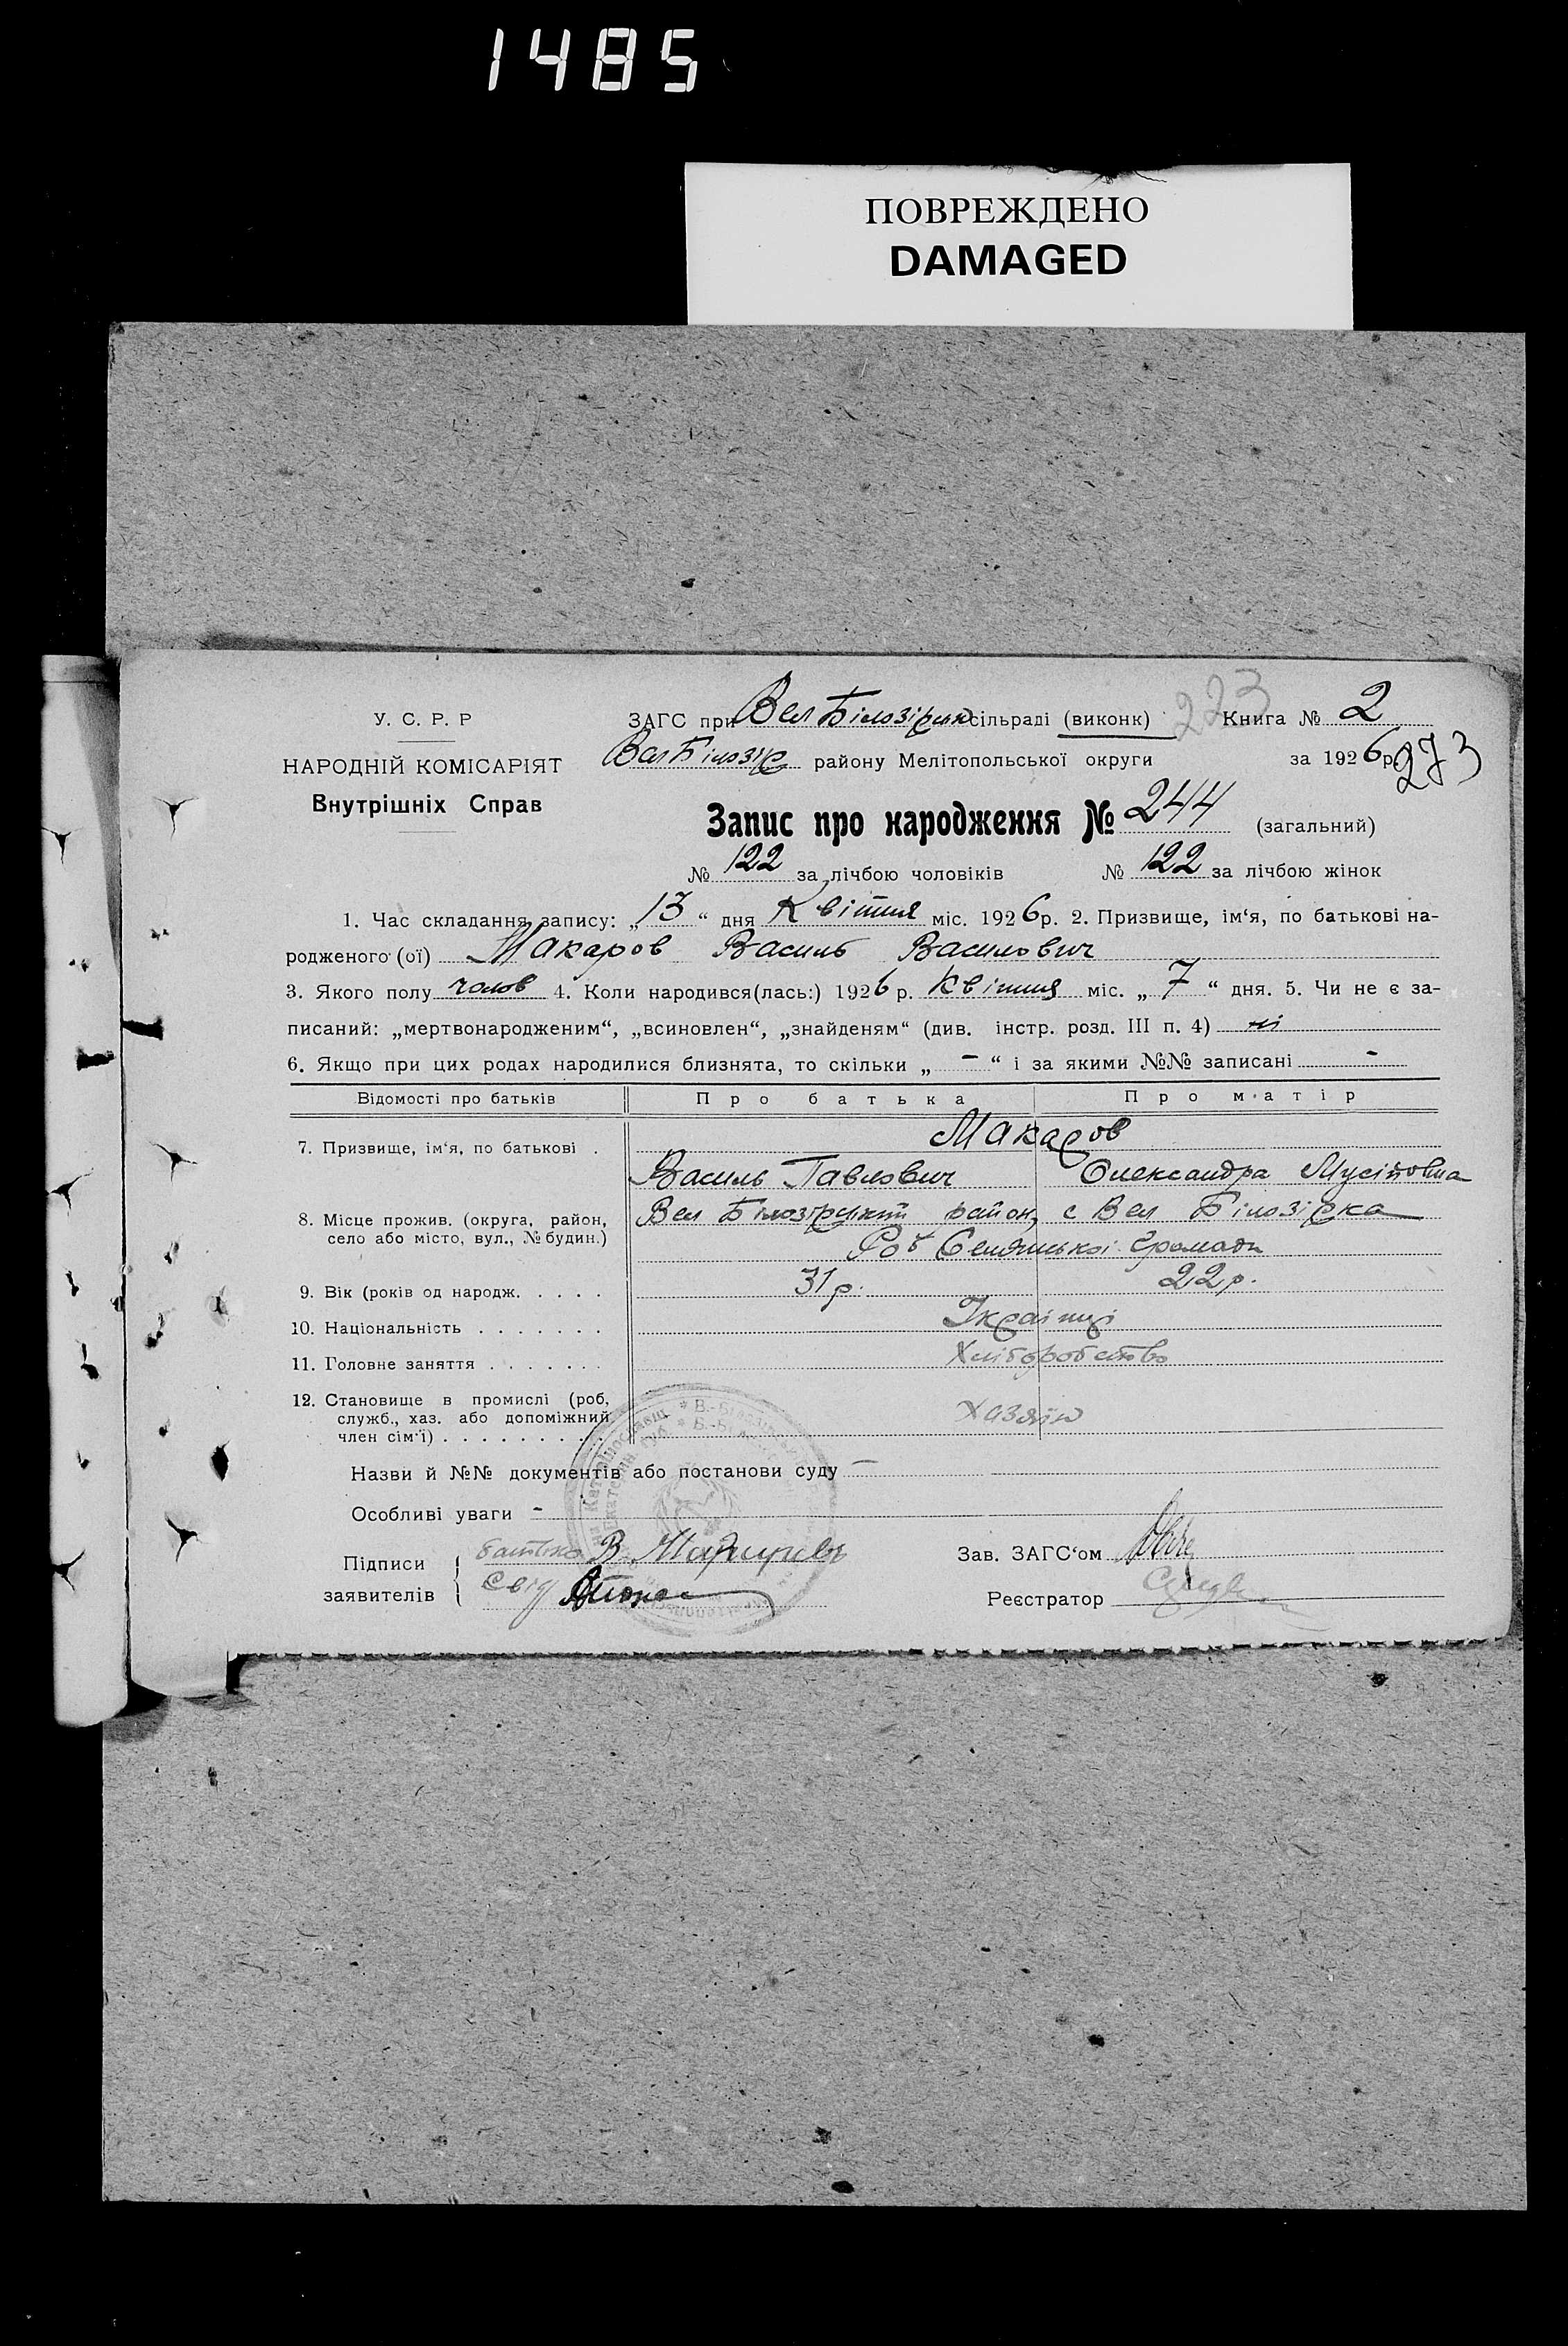 1485
ПОВРЕЖДЕНО
DAMAGED
У. С. Р. Р
НАРОДНІЙ КОМІСАРІЯТ
Внутрішніх Справ
223
ЗАГС при Вел Білозірськ сільраді (виконк) Книга № 2
Вел Білозір району Мелітопольської округи за 1926 р. 273
Запис про народження № 244 (загальний)
№ 122 за лічбою чоловіків № 122 за лічбою жінок
1. Час складання запису: „ 13 “ дня Квітня міс. 1926 р. 2. Призвище, ім‘я, по батькові на-
родженого (ої) Макаров Василь Васильович
3. Якого полу чолов 4. Коли народився(лась:) 1926 р. Квітня міс. „ 7 “ дня. 5. Чи не є за-
писаний: „мертвонародженим“, „всиновлен“, „знайденям“ (див. інстр. розд. III п. 4) ні
6. Якщо при цих родах народилися близнята, то скільки „ – “ і за якими №№ записані –
Відомості про батьків Про батька Про матір
7. Призвище, ім‘я, по батькові . Макаров
Василь Павлович Олександра Мусіївна
8. Місце прожив. (округа, район, село або місто, вул., № будин.) Вел Білозірський район, с Вел Білозірка
Громади
9. Вік (років од народж. . . . . 31 р. 22 р.
10. Національність . . . . . . . Українці
11. Головне заняття . . . . . . . Хліборобство
12. Становище в промислі (роб, служб., хаз. або допоміжний член сім‘ї) . . . . . . . . . Хазяїн
Назви й №№ документів або постанови суду –
Особливі уваги –
Підписи заявителів { батько В. Макаров
Свід
Зав. ЗАГС‘ом
Реєстратор